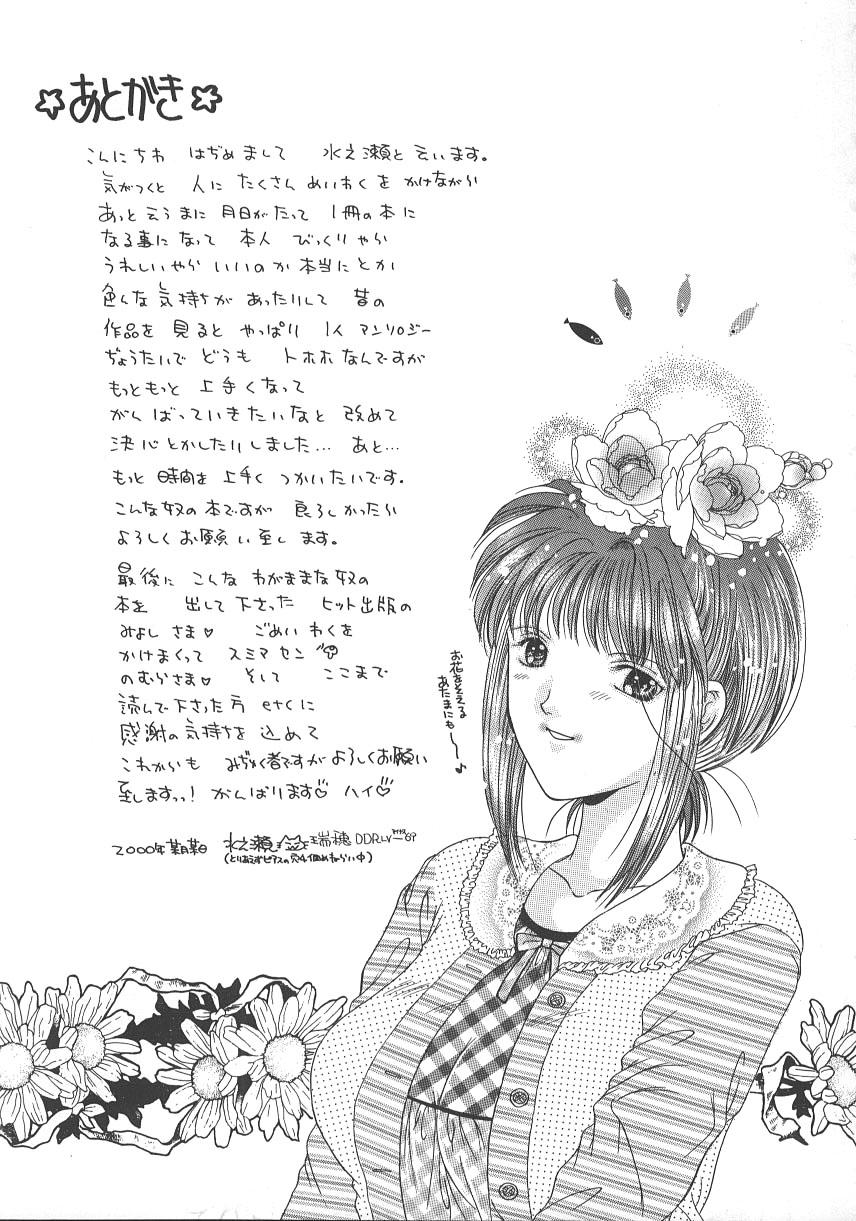 ☆あとがき☆
こんにちわ はぢめまして 水之瀬と云います。
気がつくと 人に たくさん めいわくを かけながら
あっと云うまに 月日がたって 1冊の本に
なる事になって 本人 びっくりやら
うれしいやら いいのか本当にとか
色々な気持ちが あったりして 昔の
作品を 見ると やっぱり 1人 アンソロジー
ぢょうたいで どうも トホホ なんですが
もっともっと 上手くなって
がんばっていきたいなと 改めて
決心とかしたりしました… あと…
もっと 時間を 上手く つかいたいです。
こんな奴の本ですが 良ろしかったら
よろしくお願い致します。
最後に こんな わがままな奴の
本を 出して下さった ヒット出版の
みよしさま♡ ごめいわくを
かけまくって スミマセン
のむらさま♡ そして ここまで
読んで下さった方 etcに
感謝の気持ちを 込めて
これからも みぢゅく者ですが よろしくお願い
致しますっ! がんばります♡ ハイ♡
2000年 水之瀬 瑞穂 DDRLV
(とりあえずピアスの穴4個めねらい中)
お花をそえる
あたまにも〜〜♪